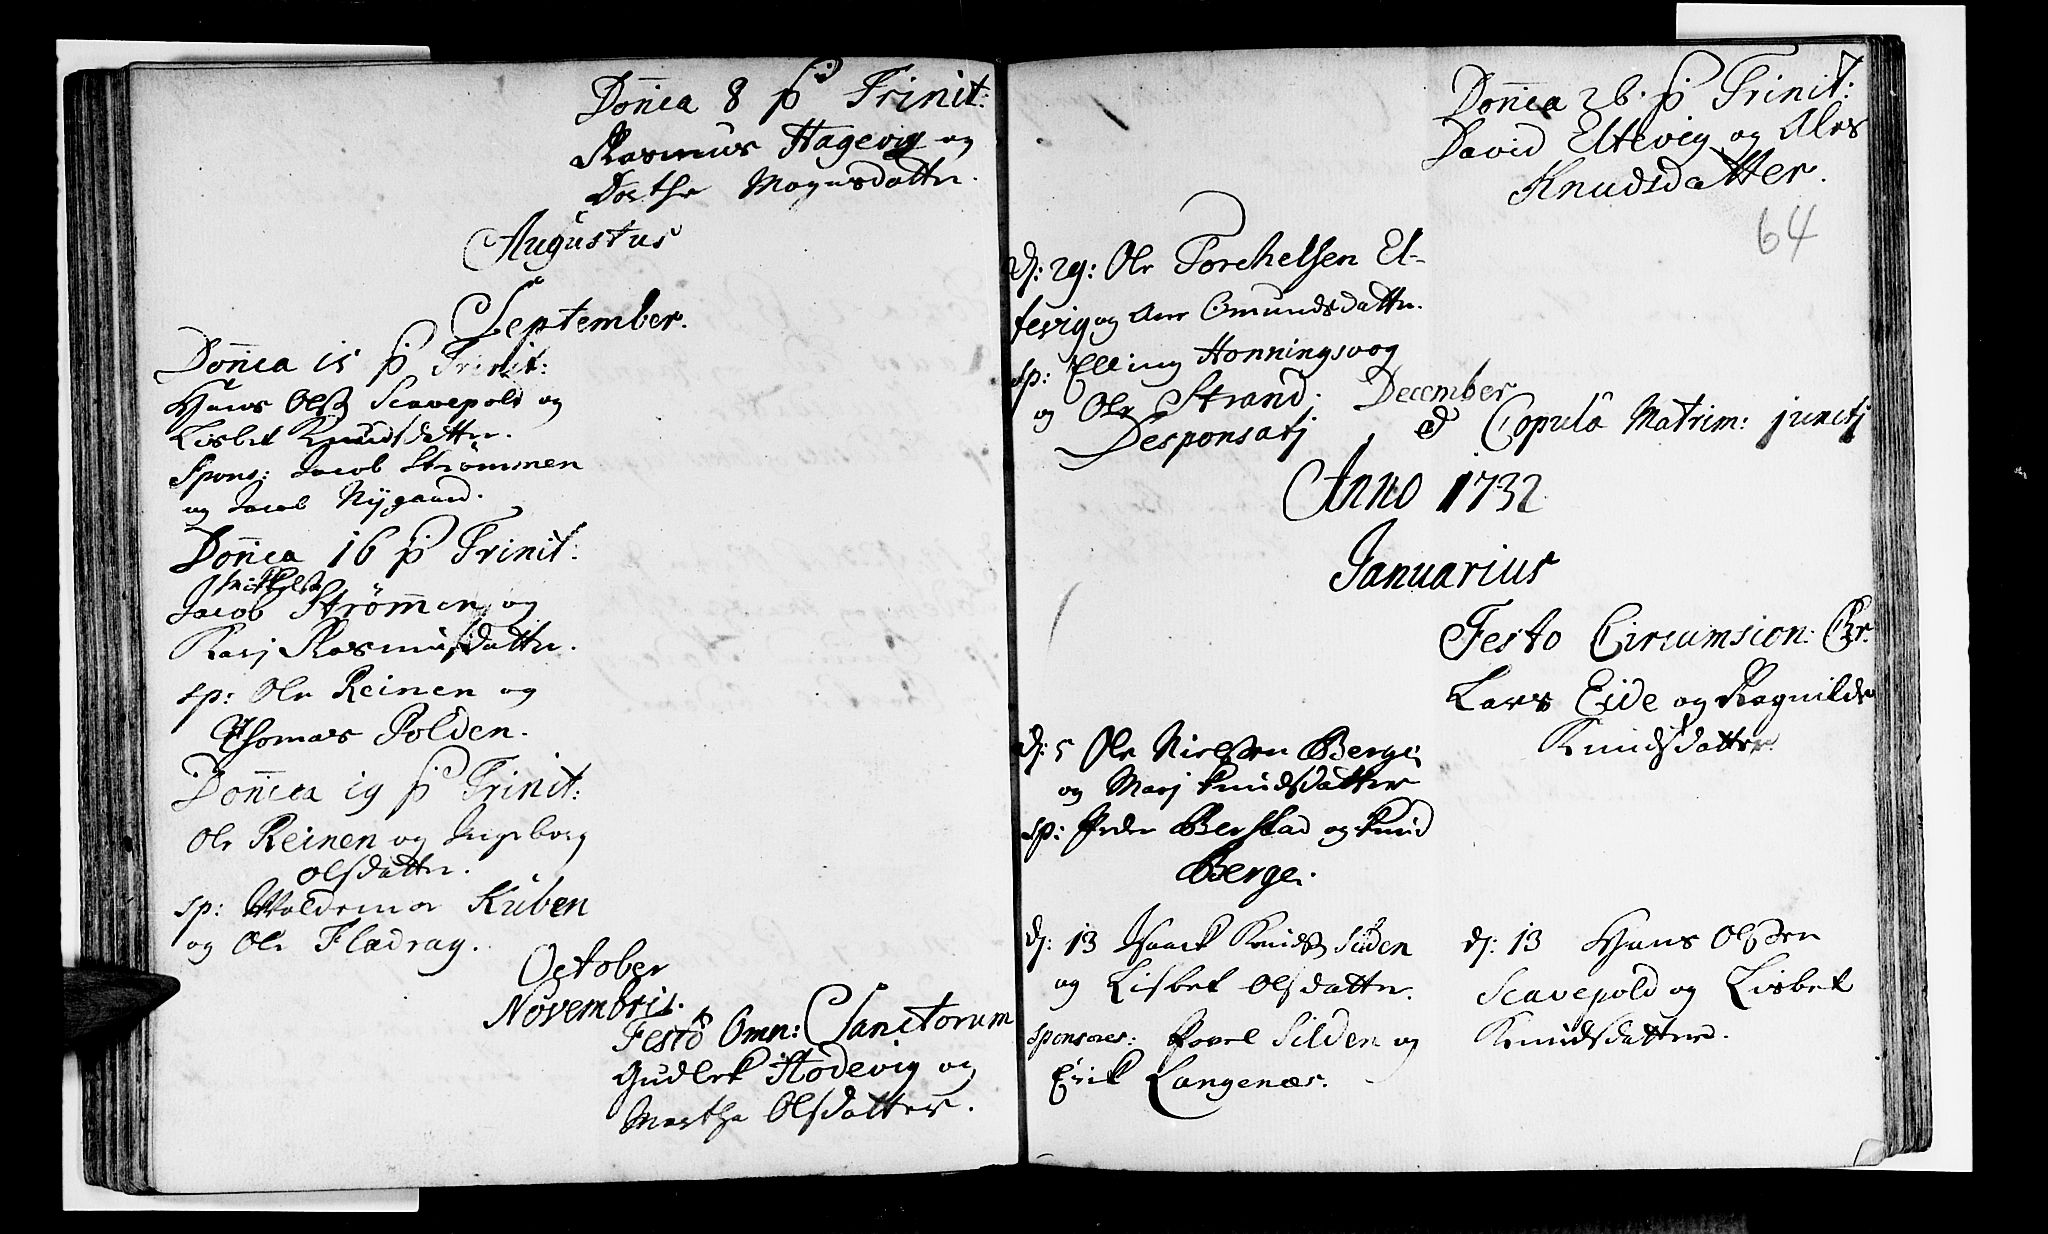 Don̄ica 8 p Trinit:
Rasmus Hagevig og
Dorthe Magnusdatter.
Augustus
September.
Don̄ica 15 p Trinit:
Hans Olss Scavepold og
Lisbet Knudsdatter.
Spons: Jacob Strømmen
og Jacob Nygaard.
Don̄ica 16 p Trinit:
Mikkelss
Jacob Strøm̄en og
Karj Rasmusdatter.
sp: Ole Reinen og
Thomas Polden.
Don̄ica 19 p Trinit:
Ole Reinen og Ingeborg
Olsdatter.
sp: Woldemar Kuben
og Ole Flædrag.
October
Novembris.
Festo Omn: Sanctorum
Gudlek Hodevig og
Marthe Olsdatter.
Don̄ica 26. p Trinit:
David Eltevig og Ales
Knudsdatter.
64
d: 29: Ole Torchelsen El-
tevig og Ane Omundsdatter.
sp: Elling Honningsvog
og Ole Strand.
December
Desponsatj, et Copula Matrim: junctj
Anno 1732
Januarius
Festo Circumsion: Chr:
Lars Eide og Ragnilde
Knudsdatter.
d: 5 Ole Nielssen Berge
og Marj Knudsdatter
sp: Peder Berstad og Knud
Berge.
d: 13 Isaack Knudss Silden
og Lisbet Olsdatter.
sponsores: Povel Silden og
Erik Langenæs.
d: 13 Hans Olssen
Scavepold og Lisbet
Knudsdatter.